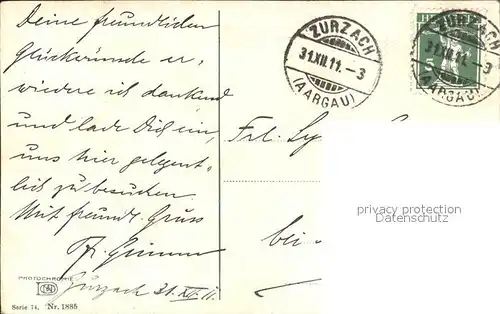 Deine freundlichen
Glückwünsche er-
wiedere ich dankend
und lade Dich ein,
uns hier gelgent-
lich zu besuchen.
Mit freundl. Gruss
Fr.
Zurzach 31. XII. 11.
PHOTOCHROMIE
Serie 74, Nr. 1885
ZURZACH
31.XII.11.–3
(AARGAU)
HE
5
ZURZACH
31.XII.11.–3
(AARGAU)
Frl.
bei
privacy protection
Datenschutz